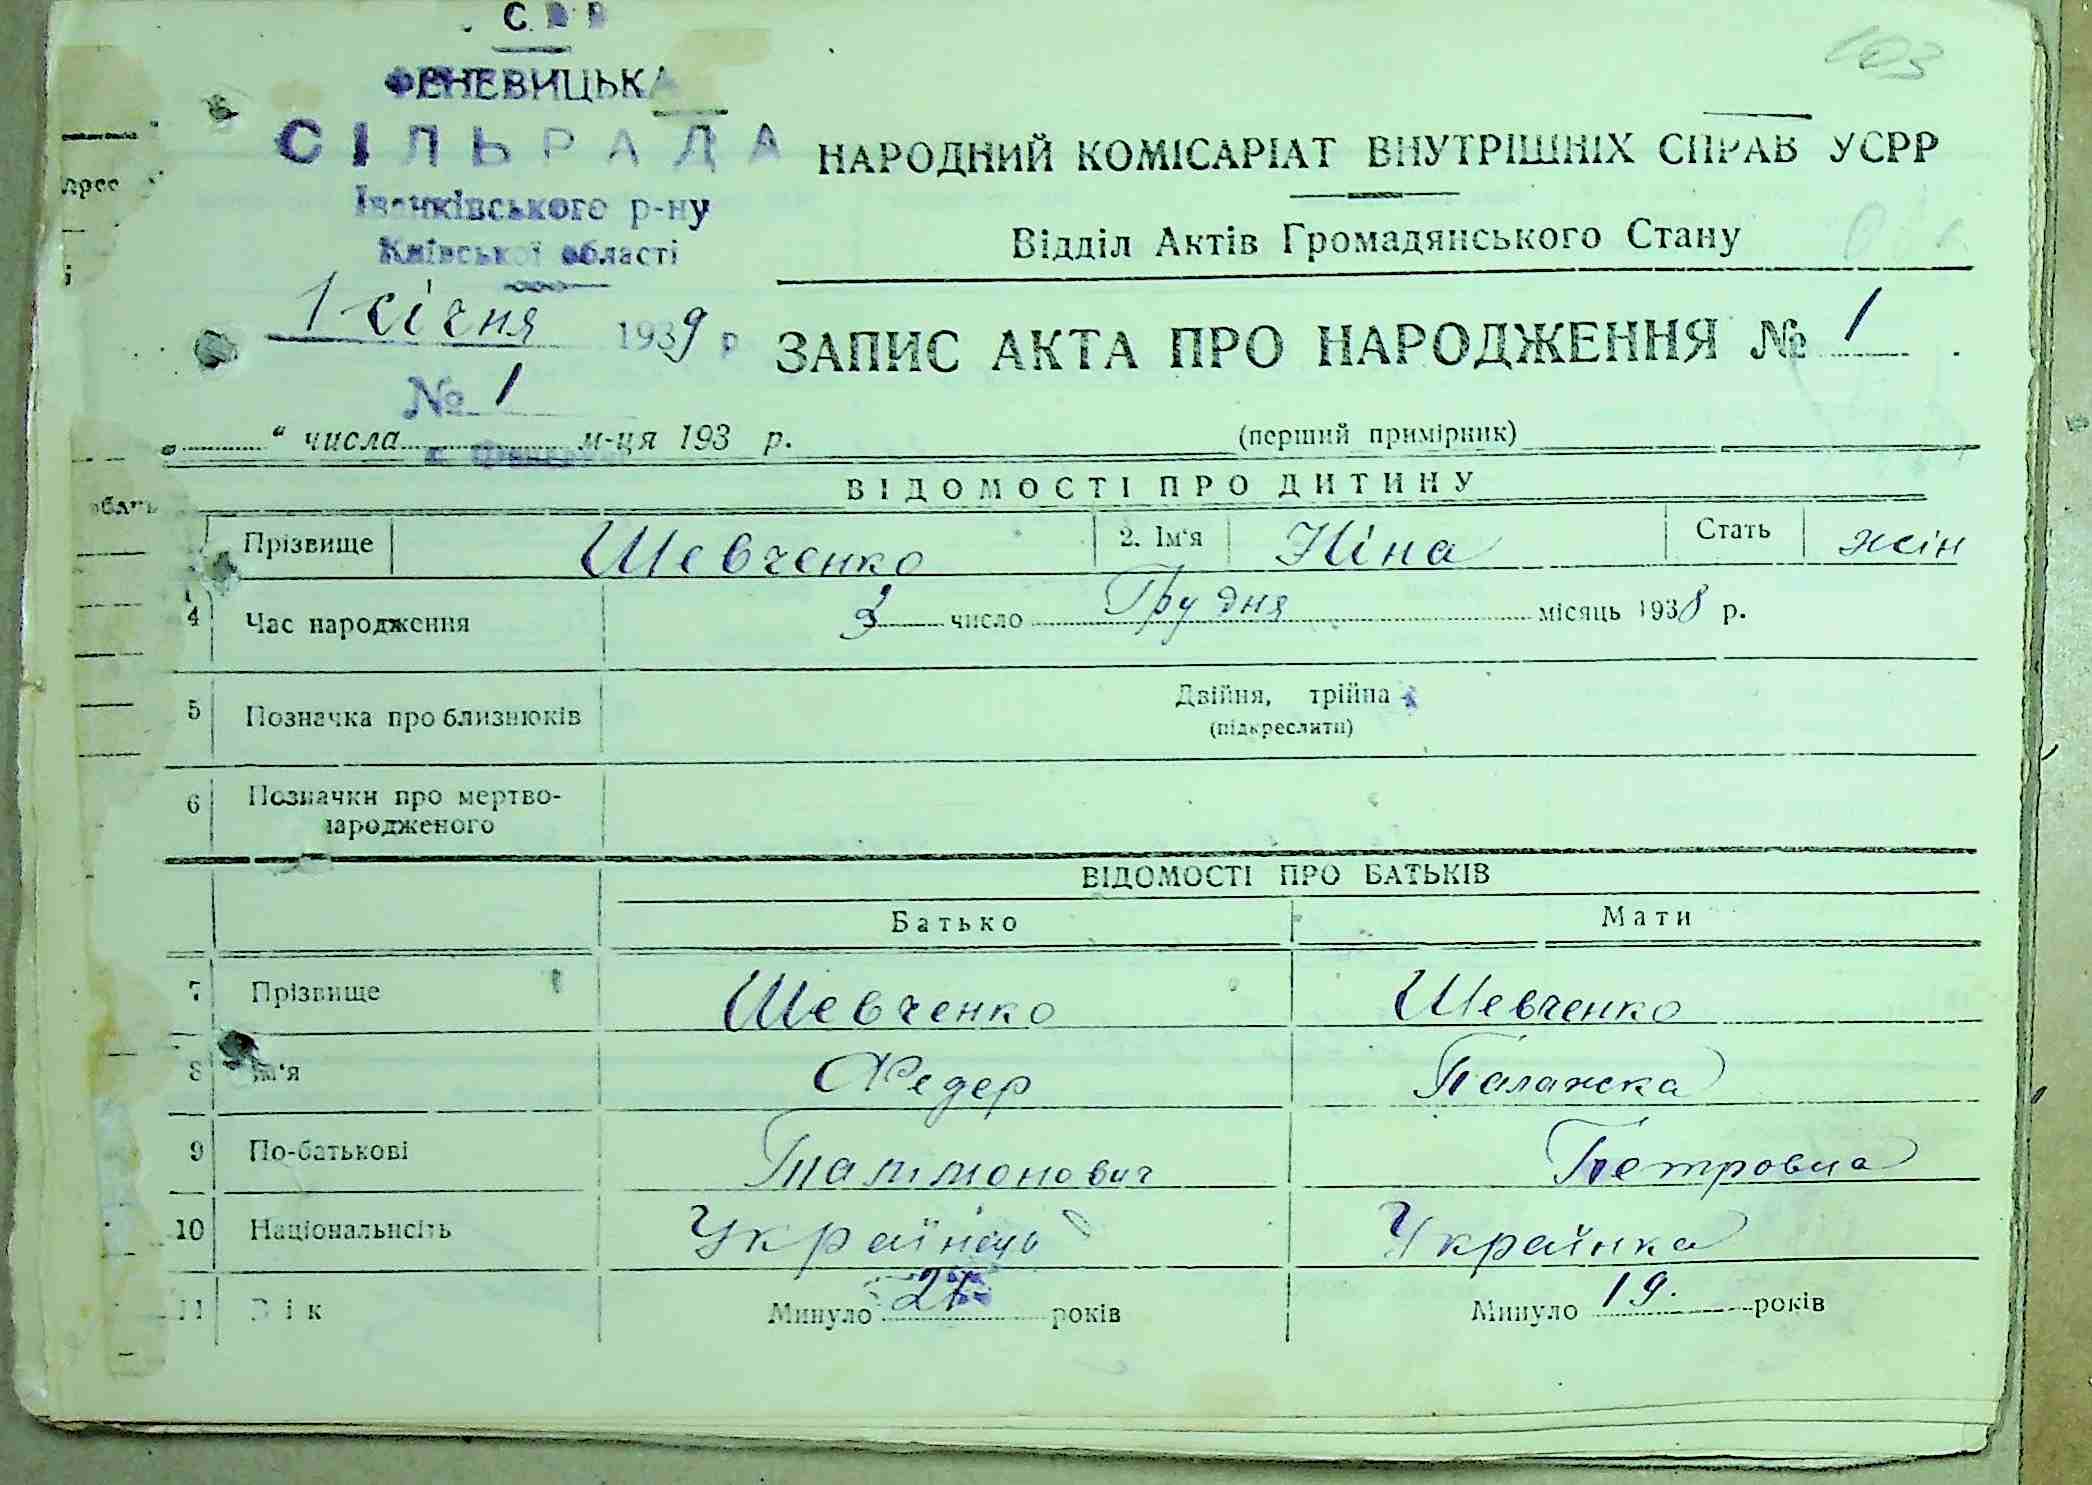 103
ФЕНЕВИЦЬКА
СІЛЬРАДА
Іванківського р-ну
Київської області
1 січня 1939 р
№ 1
НАРОДНИЙ КОМІСАРІАТ ВНУТРІШНІХ СПРАВ УСРР
Відділ Актів Громадянського Стану
ЗАПИС АКТА ПРО НАРОДЖЕННЯ № 1
„ “ числа м-ця 193 р. (перший примірник)
ВІДОМОСТІ ПРО ДИТИНУ
Прізвище Шевченко 2. Ім'я Ніна Стать жін
4 Час народження 3 число Грудня місяць 1938 р.
5 Позначка про близнюків Двійня, трійня
(підкреслити)
6 Позначки про мертво-
народженого
ВІДОМОСТІ ПРО БАТЬКІВ
Батько Мати
7 Прізвище Шевченко Шевченко
8 Ім'я Федер Палажка
9 По-батькові Петровна
10 Національність Українець Українка
11 Вік Минуло років Минуло 19. років